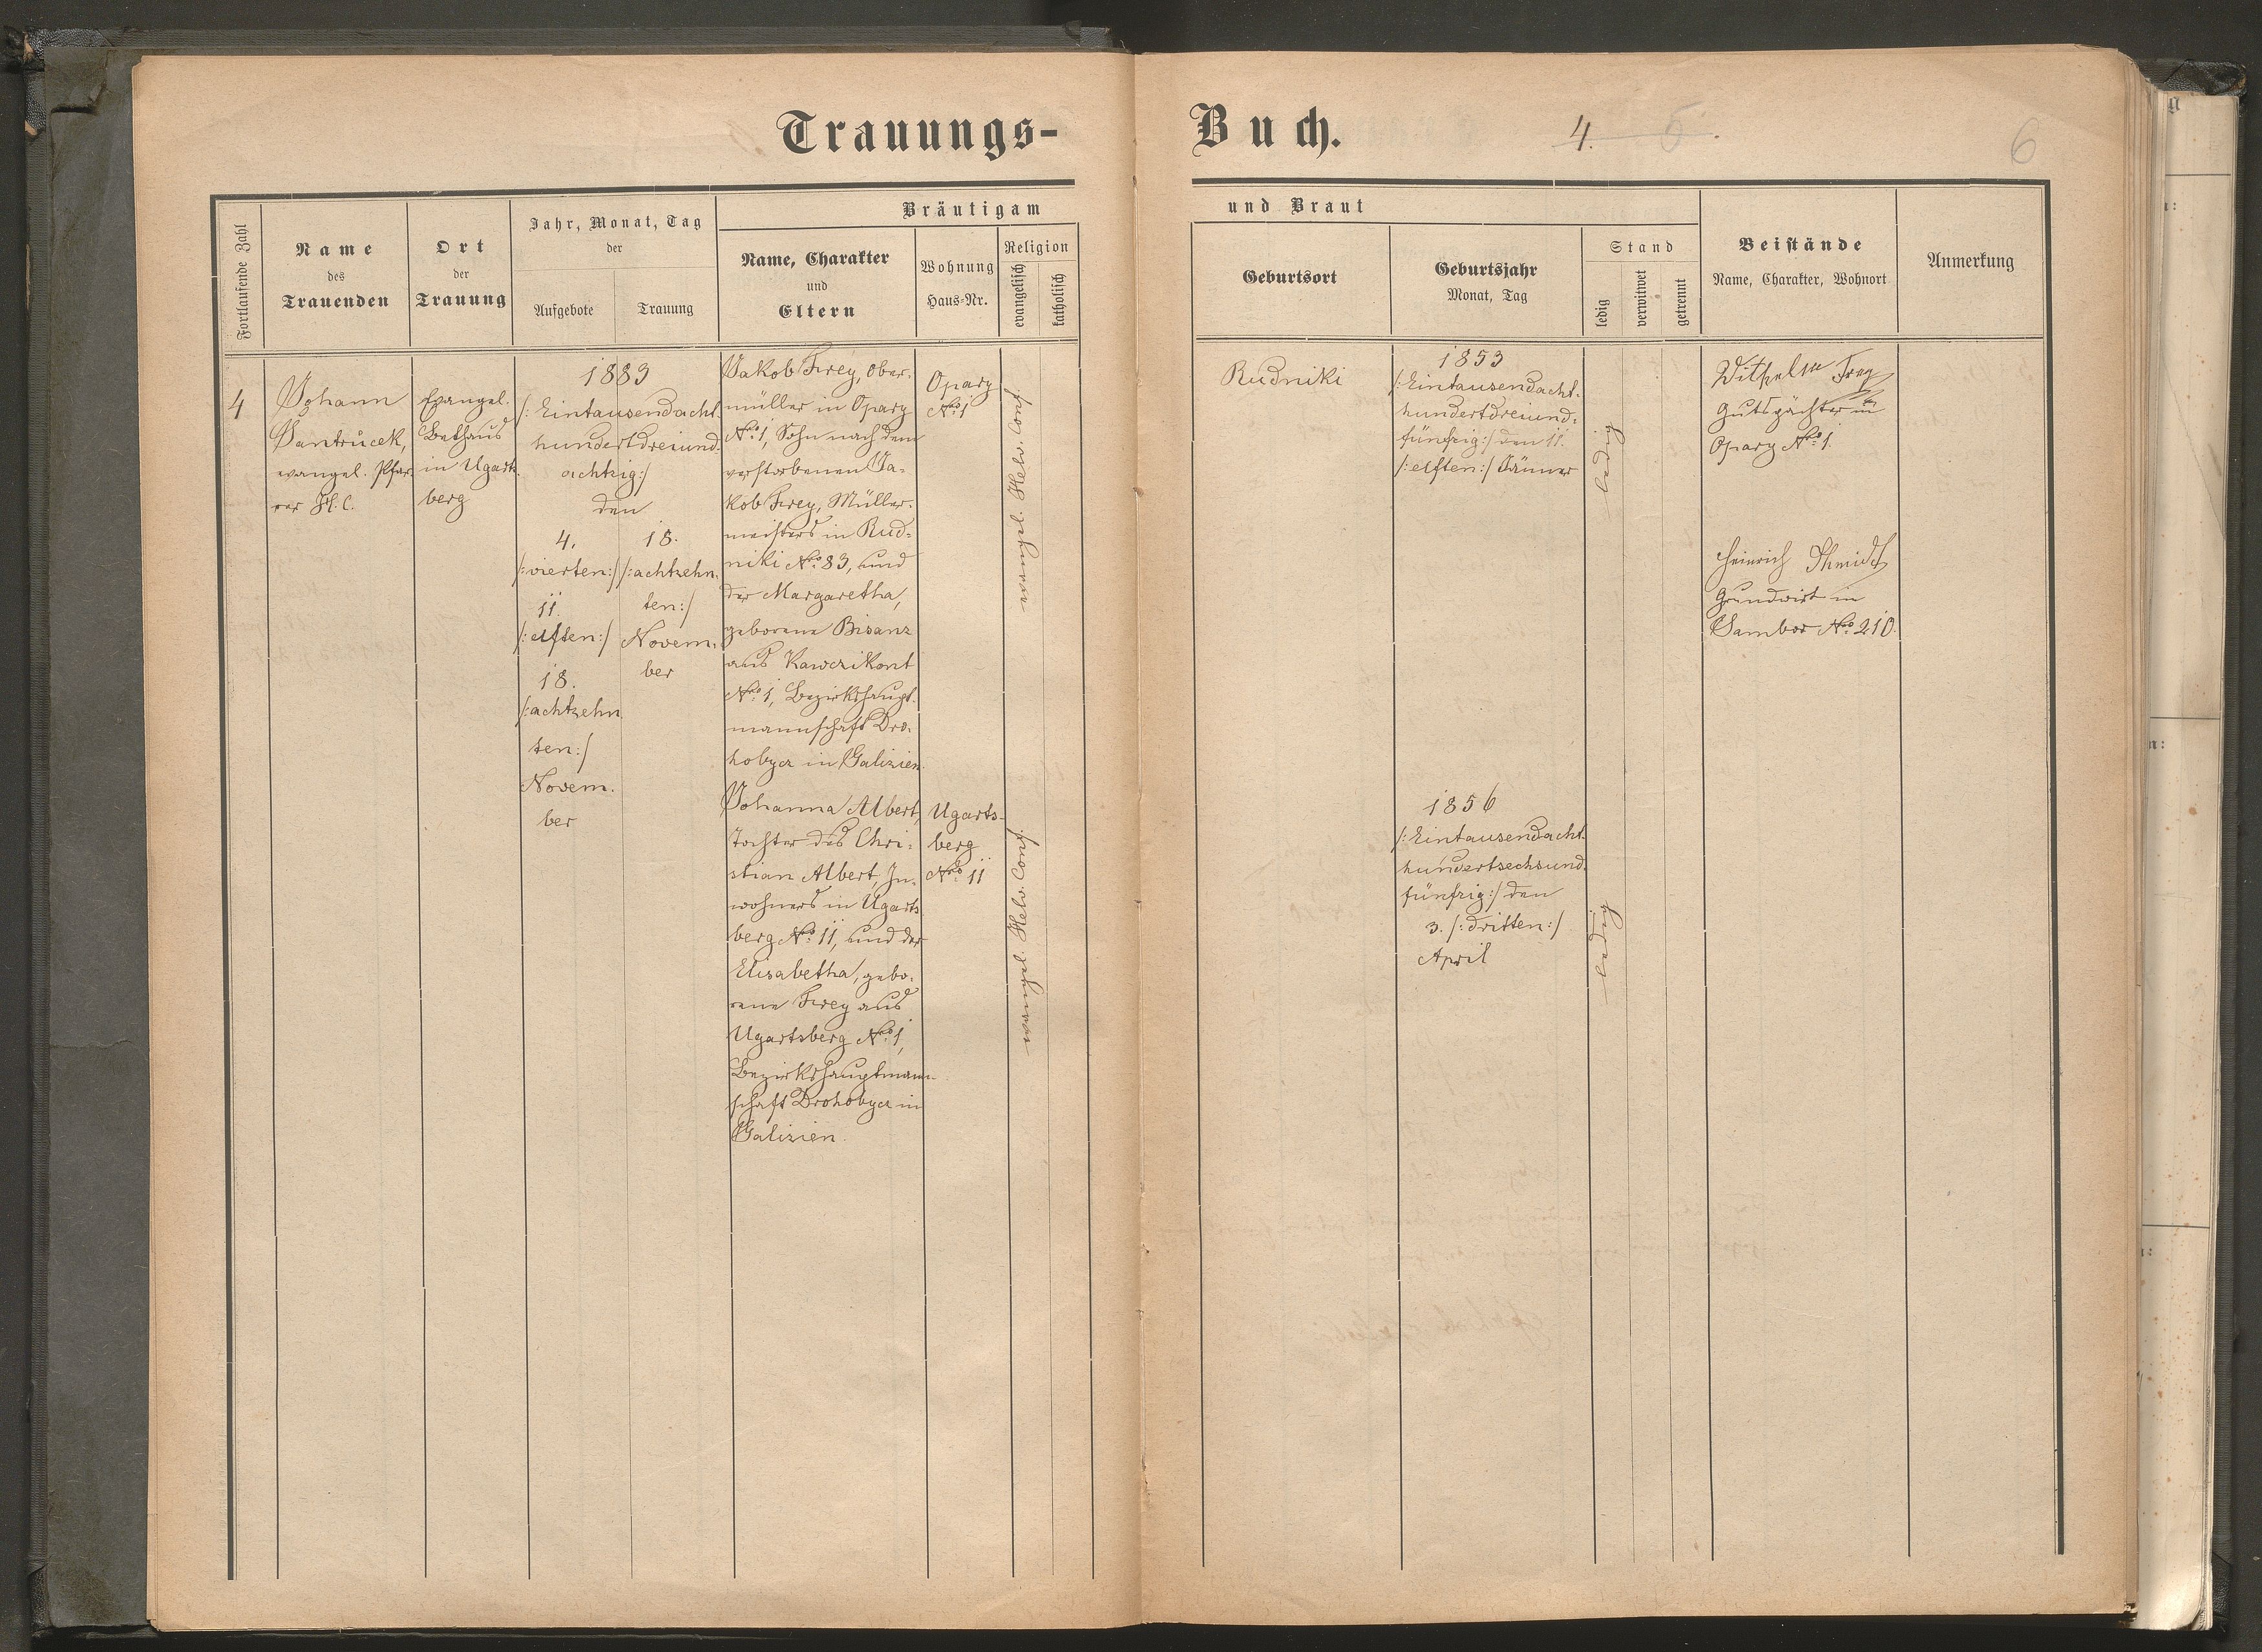 Trauungs-
Buch.
4. 5.
6
Fortlaufende Zahl
Name
des
Trauenden
Ort
der
Trauung
Jahr, Monat, Tag
der
Aufgebote
Trauung
Bräutigam
Name, Charakter
und
Eltern
Wohnung
Haus-Nr.
Religion
evangelisch
katholisch
und Braut
Geburtsort
Geburtsjahr
Monat, Tag
Stand
ledig
verwitwet
getrennt
Beistände
Name, Charakter, Wohnort
Anmerkung
4
Johann
Jantrůcek,
evangel. Pfar-
rer H. C.
Evangel.
Bethaus
in Ugarts-
berg
1883
/: Eintausendacht
hundertdreiund-
achtzig:/
den
4.
/:vierten:/
11.
/:elften:/
18.
/:achtzehn
ten:/
Novem-
ber
18.
/:achtzehn-
ten:/
Novem-
ber
Jakob Frey, Ober-
müller in Opary
No. 1, Sohn nach dem
verstorbenen Ja-
kob Frey, Müller-
meisters in Rud-
niki No. 83, und
der Margaretha,
geborene Bisanz
aus Kawczikont
No. 1, Bezirkshaupt-
mannschaft Dro-
hobycz in Galizien.
Opary
No. 1
evangel. Helv. Conf.
Rudniki
1853
/:Eintausendacht-
hundertdreiund-
fünfzig:/ den 11.
/:elften:/ Jänner
ledig
Wilhelm Frey
Gutspächter in
Opary No. 1.
Heinrich Schmidt
Grundwirt in
Sambor No. 210.
Johanna Albert,
Tochter des Chri-
stian Albert, In-
wohners in Ugarts
berg No. 11, und der
Elisabetha, gebo-
rene Frey aus
Ugartsberg No. 1,
Bezirkshauptmann-
schaft Drohobycz in
Galizien.
Ugarts-
berg
No. 11
evangel. Helv. Conf.
1856
/:Eintausendacht-
hundertsechsund-
fünfzig:/ den
3. /:dritten:/
April
ledig